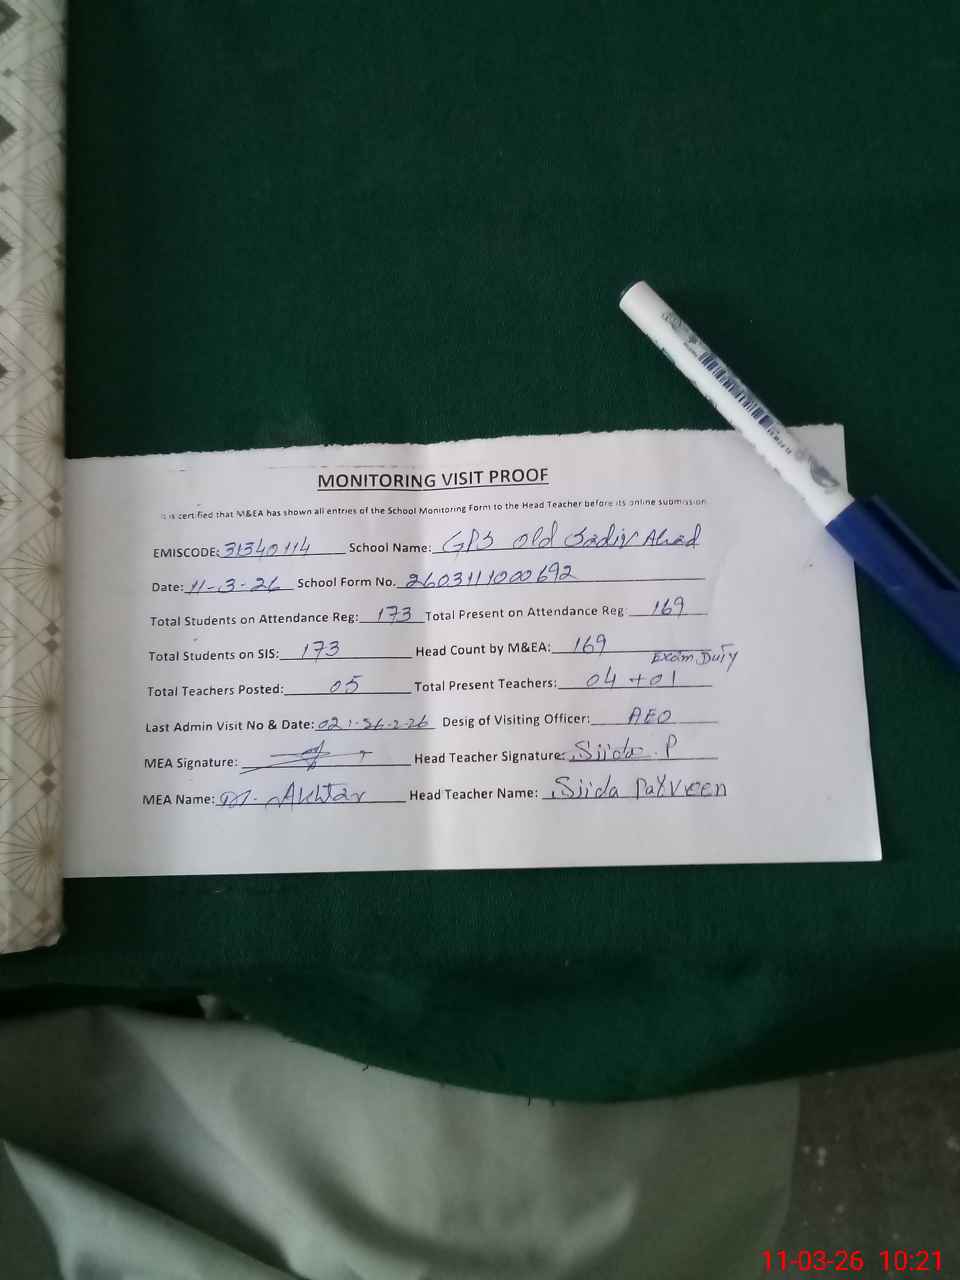 MONITORING VISIT PROOF
is certified that M&EA has shown all entries of the School Monitoring Form to the Head Teacher before its online submission
EMISCODE: 31340114 School Name: GPS Old Sadiq Abad
Date: 11-3-26 School Form No. 2603111000692
Total Students on Attendance Reg: 173 Total Present on Attendance Reg: 169
Total Students on SIS: 173 Head Count by M&EA: 169
Exam Duty
Total Teachers Posted: 05 Total Present Teachers: 04 + 01
Last Admin Visit No & Date: 02, -26-2-26 Desig of Visiting Officer: AEO
MEA Signature: Head Teacher Signature: Sjida . P
MEA Name: M. Akhtar Head Teacher Name: Sjida Parveen
11-03-26 10:21